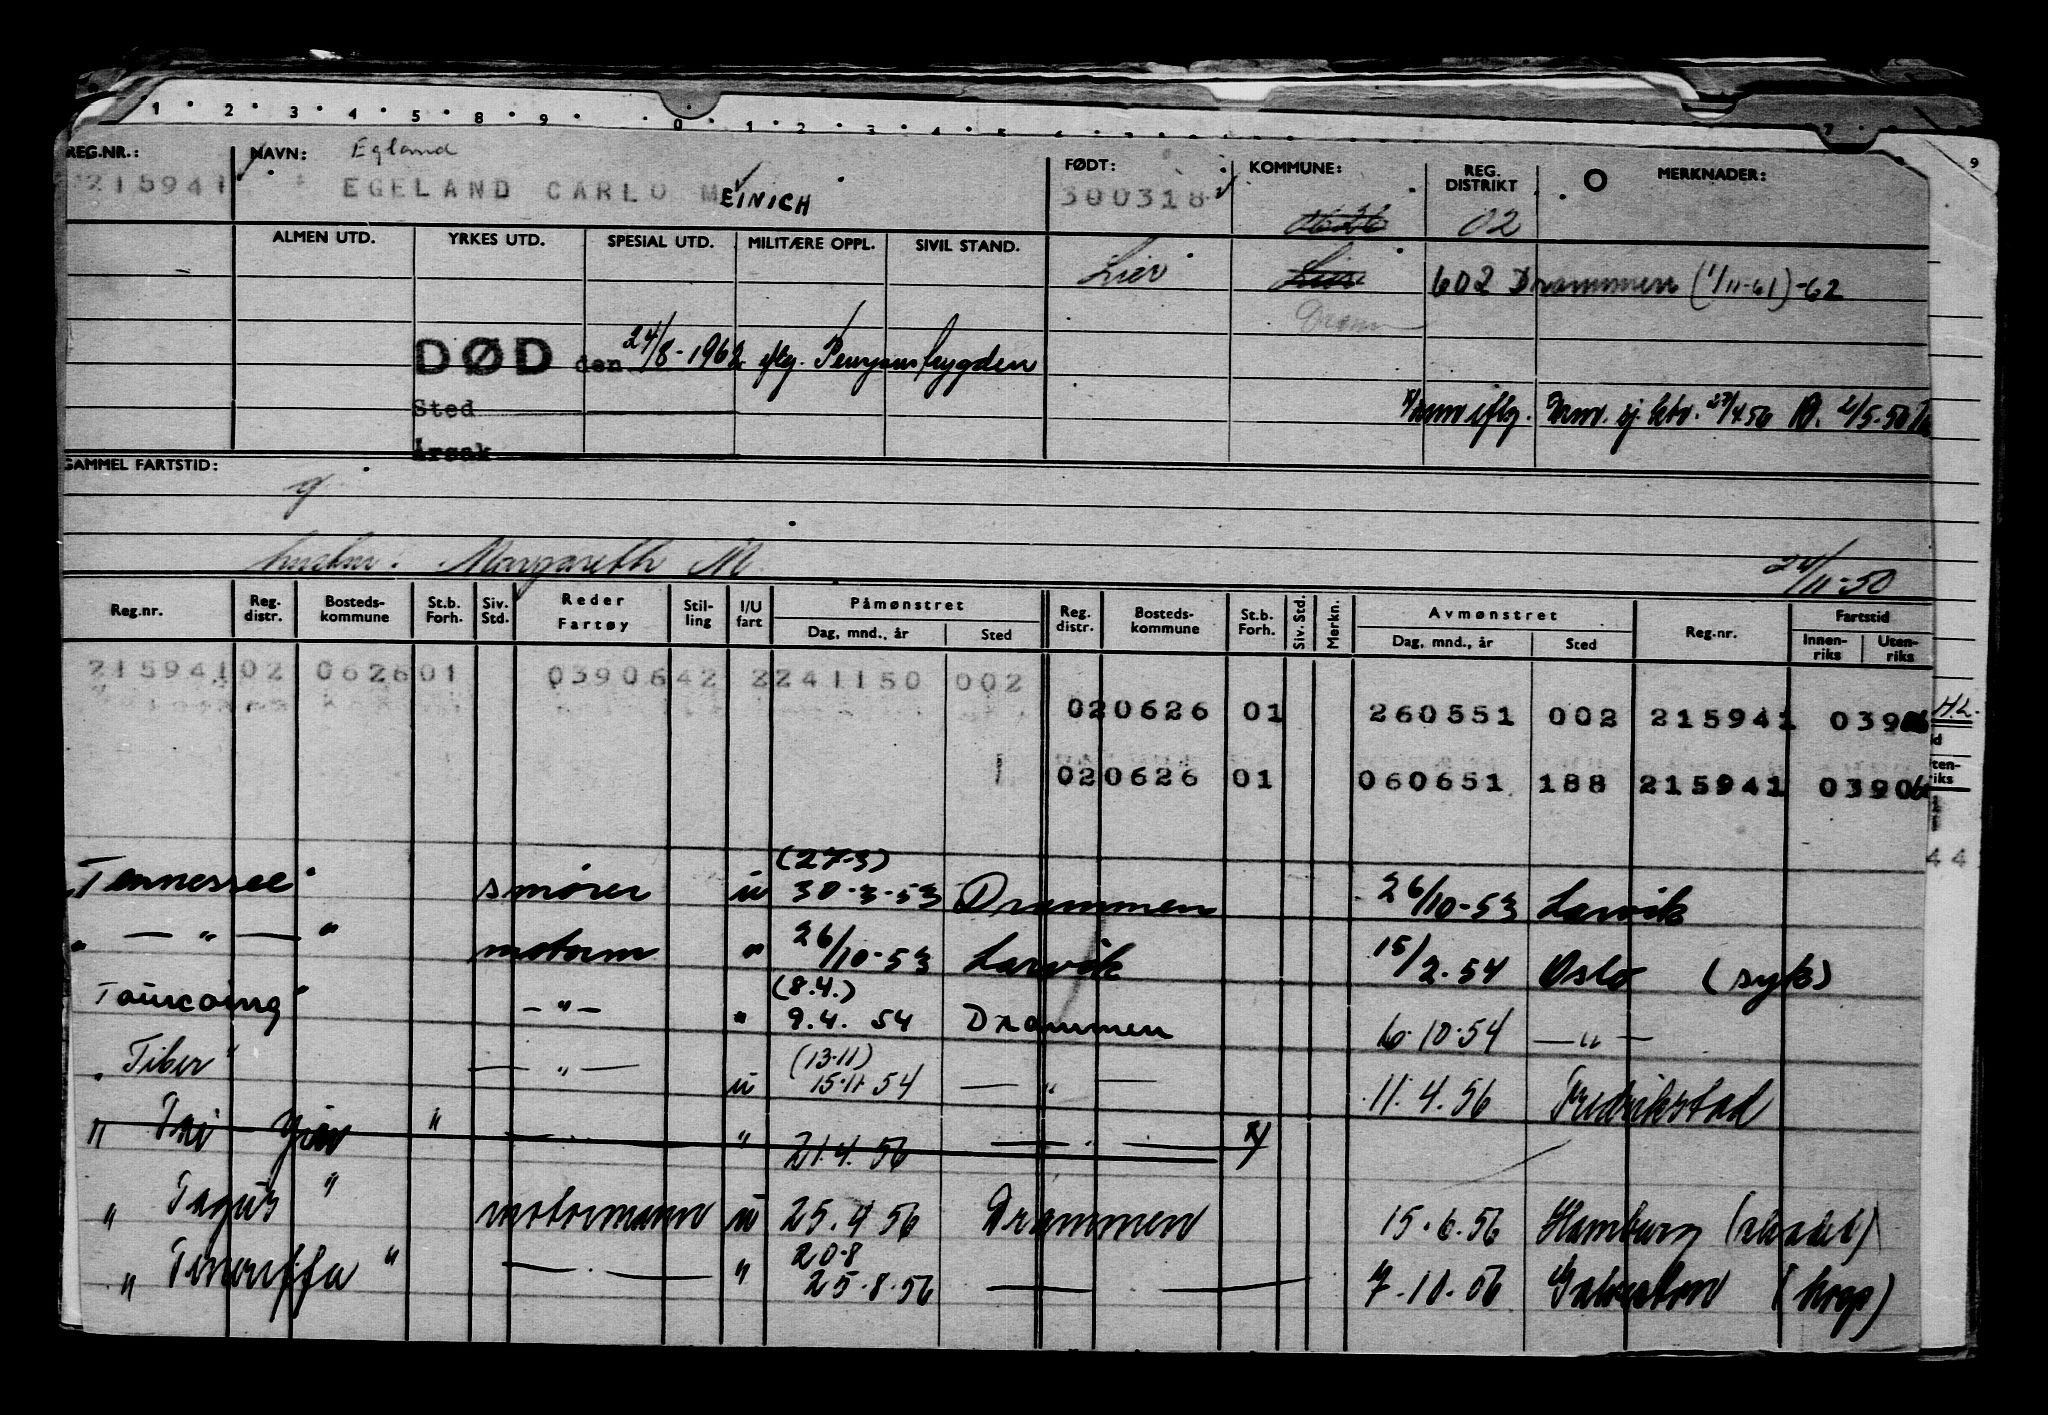 1 2 3 4 5 6 8 9 0 1 2 3 4 5 6 7 9
REG.NR.: NAVN: Egland FØDT: KOMMUNE: REG. DISTRIKT O MERKNADER:
215941 EGELAND CARLO MEINICH 300318 02
ALMEN UTD. YRKES UTD. SPESIAL UTD. MILITÆRE OPPL. SIVIL STAND.
Lier Lier 602 Drammen (1/11-61)-62
Dram
DØD den 24/8-1962 iflg.
Sted
Årsak
GAMMEL FARTSTID:
hustru: Margareth M. 24/11-50
Reg.nr. Reg. distr. Bosteds-kommune St.b. Forh. Siv. Std. Reder Fartøy Stil-ling I/U fart Påmønstret Reg. distr. Bosteds-kommune St.b. Forh. Siv. Std. Merkn. Avmønstret Reg.nr. Fartstid
Dag, mnd., år Sted Dag, mnd., år Sted Innen-riks Uten-riks
215941 02 0626 01 0390642 2 241150 002
02 0626 01 260551 002 215941 03906 H.L.
02 0626 01 060651 188 215941 03906
44
"Tennessee" smører u (27-3) 30-3-53 Drammen 26/10-53 Larvik
" — " — " motorm " 26/10-53 Larvik 15/2-54 Oslo (syk)
Tourcoing" — " — " (8.4.) 9.4. 54 Drammen 6-10-54 — " —
"Tiber" — " — u (13-11) 15-11-54 — " — 11.4.56 Fredrikstad
" Tai Yin " — " 21.4.56 — " — x)
" Tagus " motormann u 25.4 56 Drammen 15.6.56 Hamburg (skadet)
" Teneriffa " — . — " 20-8 25-8-56 — . — 7-10-56 Galveston (hosp)